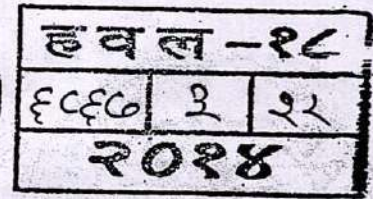 हवल - १८
६८६७ २ २२
२०१४